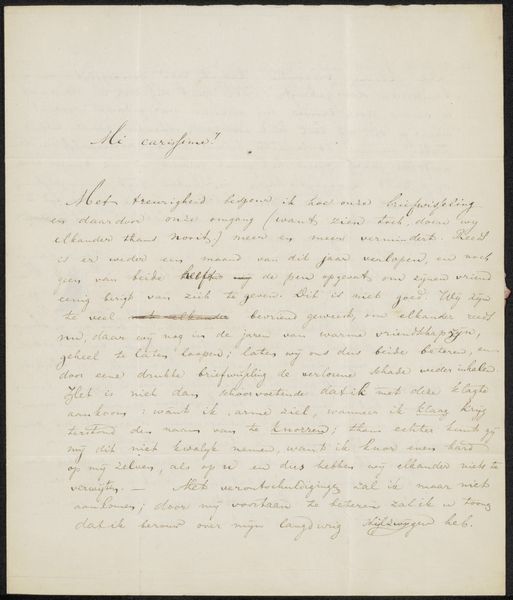 Mi carissime!
Met treurigheid bespeur ik hoe onze briefwisseling
en daardoor onze omgang (want zien toch doen wy
elkander thans nooit) meer en meer vermindert. Reeds
is er weder een maand van dit jaar verlopen, en noch
geen van beide heeft de pen opgevat om zijnen vriend
eenig berigt van zich te geven. Dit is niet goed. Wy zijn
te veel bevriend geweest, om elkander reeds
nu, daar wy nog in de jaren van warme vriendschap zijn,
geheel te laten loopen; laten wy ons dus beide beteren, en
door eene drukke briefwisseling de verloorne schade weder inhalen.
Het is niet dan schoorvoetende dat ik met deze klagte
aankoom: want ik, arme ziel, wanneer ik klaag krijg
terstond den naam van te knorren; thans echter kunt gy
my dit niet kwalyk nemen, want ik knor even hard
op my zelven, als op u en dus hebben wy elkander niets te
verwyten. — Met verontschuldigingen zal ik maar niet
aankomen; door my voortaan te beteren zal ik u toonen
dat ik berouw over mijn langdurig stilzwygen heb.